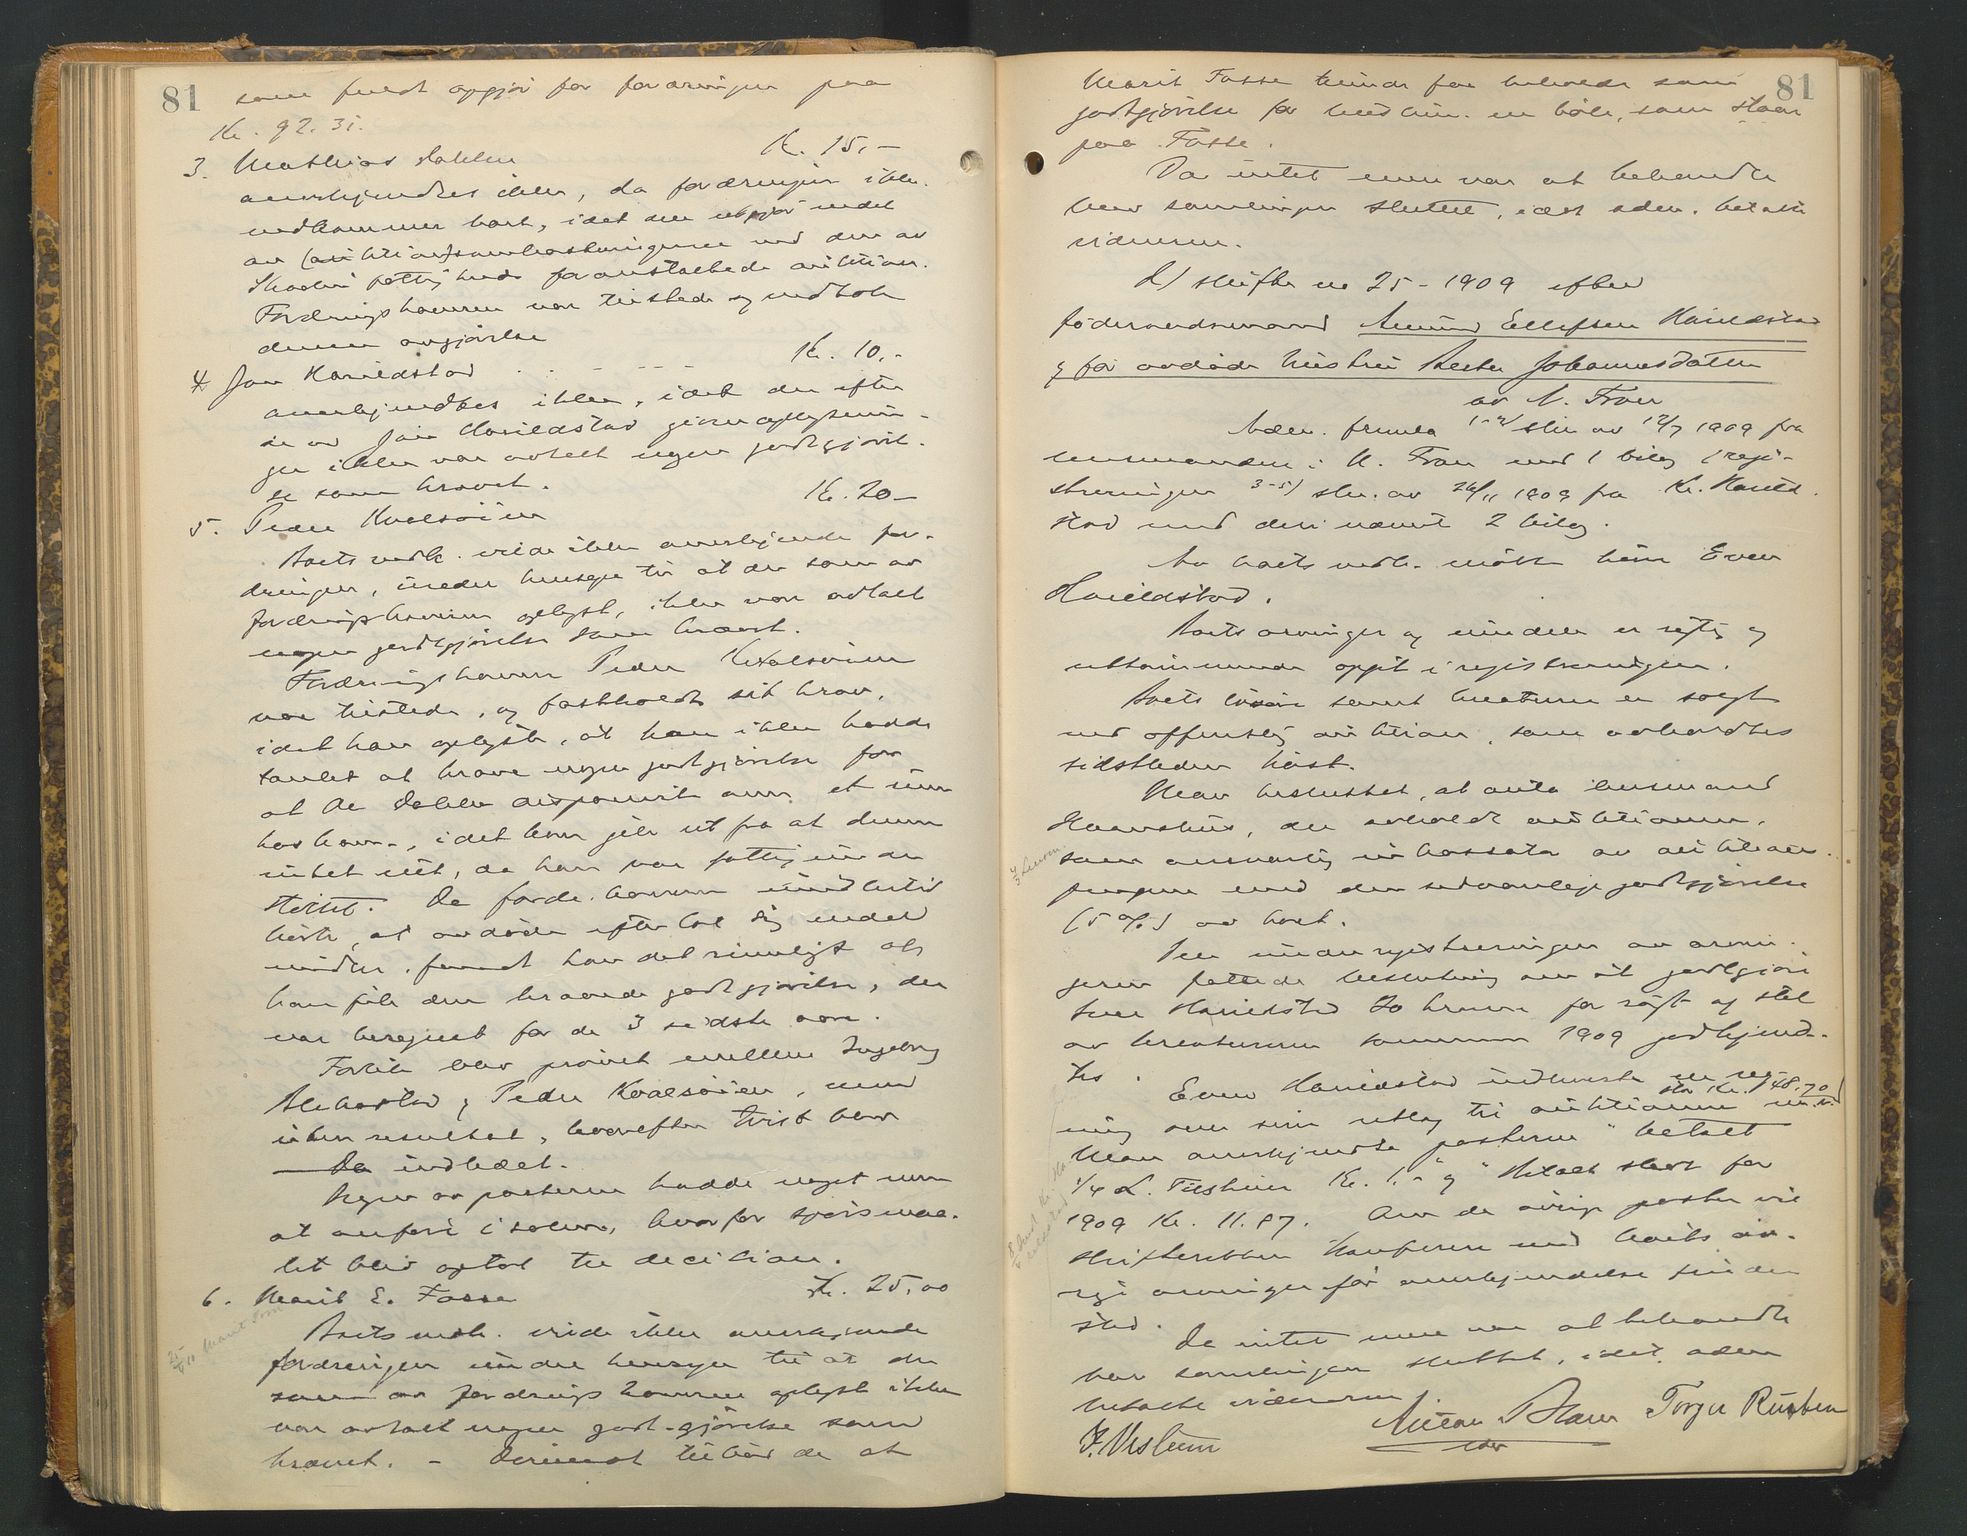 81
som fuldt opgjør for fordringen paa
Kr. 92.35.
3. Mathias Dahlen Kr. 15,-
anerkjendtes ikke, da fordringen ikke
vedkommer boet, idet den utgjør endel
av (auktions)omkostningerne ved den av
Skodin fattigkasse foranstaltede auktion.
Fordringshaveren var tilstede og vedtok
denne avgjørelse
4. Jon Harildstad . . - - - Kr. 10,-
anerkjendtes ikke, idet der efter
de av Jon Harildstad givne oplysnin-
ger ikke var avtalt nogen godtgjørel-
se som krævet.
5. Peder Kvalsøien Kr. 20-
Boets vedk. vilde ikke anerkjende for-
dringen, under hensyn til at der som av
fordringshaveren oplyst, ikke var avtalt
nogen godtgjørelse som krævet.
Fordringshaveren Peder Kvalsøien
var tilstede, og fastholdt sit krav,
idet han oplyste, at han ikke hadde
tænkt at kræve nogen godtgjørelse for
at de døde disponerte over et rum
hos ham, idet han gik ut fra at denne
intet eiet, da han var fattigunder
støttet. Da fordr.haveren imidlertid
hørte, at avdøde efterlot sig endel
midler, fandt han det rimeligt at
han fik den krævede godtgjørelse, der
var beregnet for de 3 sidste aar.
Forlik blev prøvet mellem Ingeborg
Blekastad og Peder Kvalsøien, men
uten resultat, hvorefter tvist blev
indledet.
Ingen av parterne hadde noget mer
at anføre i saken, hvorfor spørsmaa-
let blev optat til decision.
6. Marit E. Fosse Kr. 25,00
Boets vedk. vilde ikke anerkjende
fordringen under hensyn til at der
som av fordringshaveren oplyst ikke
var avtalt nogen godtgjørelse som
krævet. - Derimot tilbød de at
81
Marit Fosse kunde faa beholde som
godtgjørelse for husrum en bøle, som staar
paa Fosse.
Da intet mere var at behandle
blev samlingen sluttet, idet adm. betalte
vidnerne.
2) skifte no 25-1909 efter
føderaadsmand Amund Ellefsen Harildstad
og før avdøde hustru Berthe Johannesdatter
av N. Fron
Adm. fremla 1-2/ skr. av 12/7 1909 fra
lensmanden i N. Fron med 1 bilag (regi-
streringen 3-5/ skr. av 26/11 1909 fra Kr. Harild-
stad med deri nævnt 2 bilag.
Av boets vedk. møtte kun Even
Harildstad.
Boets arvinger og midler er rigtig og
uttømmende opgit i registreringen.
Boets løsøre samt kreaturer er solgt
ved offentlig auktion, som avholdtes
sidstleden høst.
Man besluttet, at anta lensmand
Haanshus, der avholdt auktionen,
som ansvarlig inkassator av auktions-
pengene mot den sedvanlige godtgjørelse
(5 %) av boet.
Den under registreringen av arvin-
gerne fattede beslutning om at godtgjøre
Even Harildstad 20 kroner for røgt og stel
av kreaturerne sommeren 1909 godkjend-
tes.
Even Harildstad indleverte en reg-
ning over sine utlæg til auktionen stor Kr. 48.70
Man anerkjendte posterne "betalt
1/4 L. Kr. 1.-" og "Betalt skat for
1909 Kr. 11.87. Om de øvrige poster vil
skifteretten konferere med boets øv-
rige arvinger før anerkjendelse finder
sted.
Da intet mere var at behandle
blev samlingen sluttet, idet adm
betalte vidnerne.
Torger Rusten